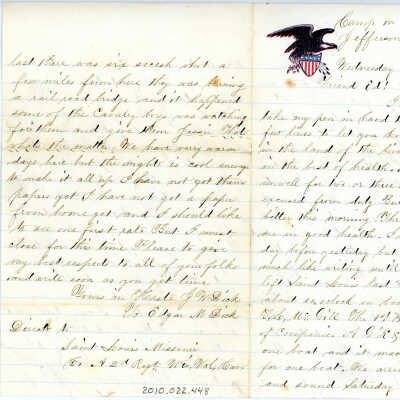 last there was six secesh shot a
few miles from here they was burning
a rail road bridge and it happened
some of the Cavelry boys was watching
for them and give them Jessie That
what the matter. We have very warm
days here but the night is cool enough
to make it all up I have not got them
papers yet I have not got a paper
from home yet and I should like
to see one first rate But I must
close for this time Please to give
my best respect to all of your folks
and write soon as you get time
Yours in Haste J W Dick
To Edgar M Dick
Direct to
Saint Louis Missouri
Co A 2d Regt Wis Vol, Cav
2010.022.448
Camp on
Jefferson
Wednesday
Friend Ed!
take my pen in hand t
few lines to let you kno
in the land of the livin
in the best of health.
unwell for two or three
excused from duty But
better this morning
are in good health.
day before yesterday but
much like writing until
left Saint Louis last
about six oclock in
of Companies A D K &
one boat and it mad
for one boat. We arriv
and sound Saturday